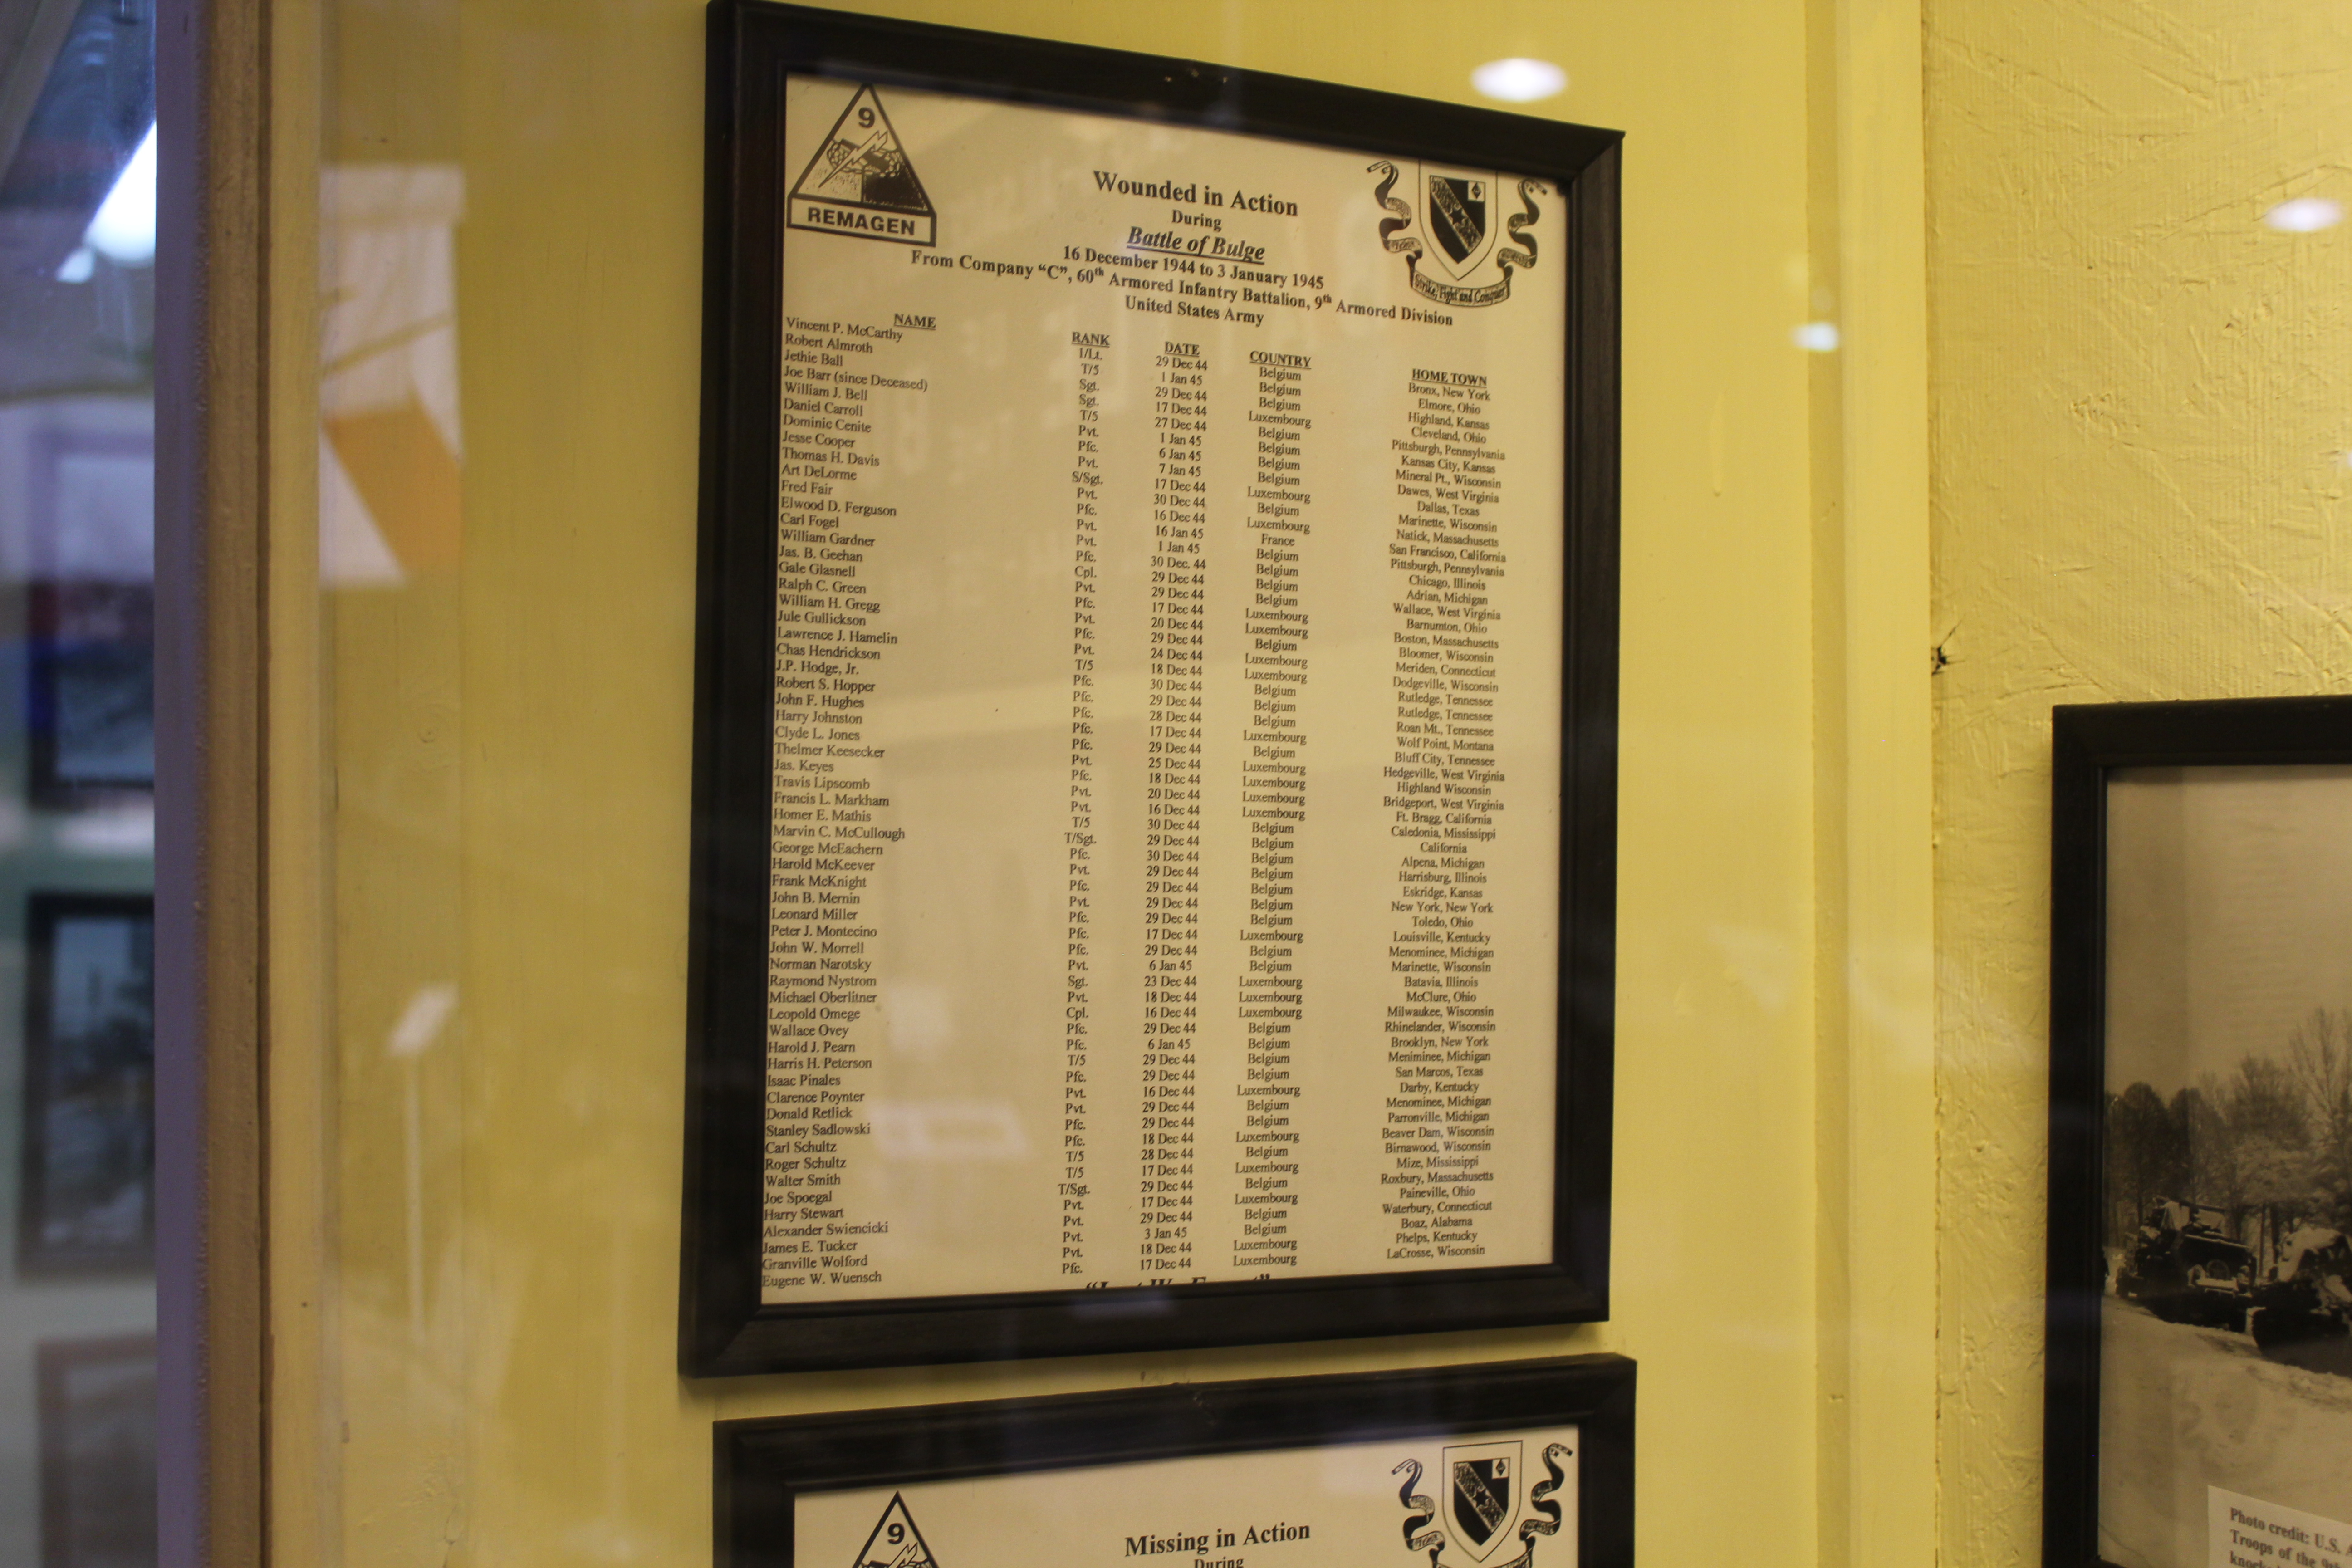 9
REMAGEN
Wounded in Action
During
Battle of Bulge
16 December 1944 to 3 January 1945
From Company “C”, 60th Armored Infantry Battalion, 9th Armored Division
United States Army
Strike, Fight and Conquer
NAME RANK DATE COUNTRY HOME TOWN
Vincent P. McCarthy 1/Lt. 29 Dec 44 Belgium Bronx, New York
Robert Almroth T/5 1 Jan 45 Belgium Elmore, Ohio
Jethie Ball Sgt. 29 Dec 44 Belgium Highland, Kansas
Joe Barr (since Deceased) Sgt. 17 Dec 44 Luxembourg Cleveland, Ohio
William J. Bell T/5 27 Dec 44 Belgium Pittsburgh, Pennsylvania
Daniel Carroll Pvt. 1 Jan 45 Belgium Kansas City, Kansas
Dominic Cenite Pfc. 6 Jan 45 Belgium Mineral Pt., Wisconsin
Jesse Cooper Pvt. 7 Jan 45 Belgium Dawes, West Virginia
Thomas H. Davis S/Sgt. 17 Dec 44 Luxembourg Dallas, Texas
Art DeLorme Pvt. 30 Dec 44 Belgium Marinette, Wisconsin
Fred Fair Pfc. 16 Dec 44 Luxembourg Natick, Massachusetts
Elwood D. Ferguson Pvt. 16 Jan 45 France San Francisco, California
Carl Fogel Pvt. 1 Jan 45 Belgium Pittsburgh, Pennsylvania
William Gardner Pfc. 30 Dec. 44 Belgium Chicago, Illinois
Jas. B. Geehan Cpl. 29 Dec 44 Belgium Adrian, Michigan
Gale Glasnell Pvt. 29 Dec 44 Belgium Wallace, West Virginia
Ralph C. Green Pfc. 17 Dec 44 Luxembourg Barnumton, Ohio
William H. Gregg Pvt. 20 Dec 44 Luxembourg Boston, Massachusetts
Jule Gullickson Pfc. 29 Dec 44 Belgium Bloomer, Wisconsin
Lawrence J. Hamelin Pvt. 24 Dec 44 Luxembourg Meriden, Connecticut
Chas Hendrickson T/5 18 Dec 44 Luxembourg Dodgeville, Wisconsin
J.P. Hodge, Jr. Pfc. 30 Dec 44 Belgium Rutledge, Tennessee
Robert S. Hopper Pfc. 29 Dec 44 Belgium Rutledge, Tennessee
John F. Hughes Pfc. 28 Dec 44 Belgium Roan Mt., Tennessee
Harry Johnston Pfc. 17 Dec 44 Luxembourg Wolf Point, Montana
Clyde L. Jones Pfc. 29 Dec 44 Belgium Bluff City, Tennessee
Thelmer Keesecker Pvt. 25 Dec 44 Luxembourg Hedgeville, West Virginia
Jas. Keyes Pfc. 18 Dec 44 Luxembourg Highland Wisconsin
Travis Lipscomb Pvt. 20 Dec 44 Luxembourg Bridgeport, West Virginia
Francis L. Markham Pvt. 16 Dec 44 Luxembourg Ft. Bragg, California
Homer E. Mathis T/5 30 Dec 44 Belgium Caledonia, Mississippi
Marvin C. McCullough T/Sgt. 29 Dec 44 Belgium California
George McEachern Pfc. 30 Dec 44 Belgium Alpena, Michigan
Harold McKeever Pvt. 29 Dec 44 Belgium Harrisburg, Illinois
Frank McKnight Pfc. 29 Dec 44 Belgium Eskridge, Kansas
John B. Mernin Pvt. 29 Dec 44 Belgium New York, New York
Leonard Miller Pfc. 29 Dec 44 Belgium Toledo, Ohio
Peter J. Montecino Pfc. 17 Dec 44 Luxembourg Louisville, Kentucky
John W. Morrell Pfc. 29 Dec 44 Belgium Menominee, Michigan
Norman Narotsky Pvt. 6 Jan 45 Belgium Marinette, Wisconsin
Raymond Nystrom Sgt. 23 Dec 44 Luxembourg Batavia, Illinois
Michael Oberlitner Pvt. 18 Dec 44 Luxembourg McClure, Ohio
Leopold Omege Cpl. 16 Dec 44 Luxembourg Milwaukee, Wisconsin
Wallace Ovey Pfc. 29 Dec 44 Belgium Rhinelander, Wisconsin
Harold J. Pearn Pfc. 6 Jan 45 Belgium Brooklyn, New York
Harris H. Peterson T/5 29 Dec 44 Belgium Meniminee, Michigan
Isaac Pinales Pfc. 29 Dec 44 Belgium San Marcos, Texas
Clarence Poynter Pvt. 16 Dec 44 Luxembourg Darby, Kentucky
Donald Retlick Pvt. 29 Dec 44 Belgium Menominee, Michigan
Stanley Sadlowski Pfc. 29 Dec 44 Belgium Parronville, Michigan
Carl Schultz Pfc. 18 Dec 44 Luxembourg Beaver Dam, Wisconsin
Roger Schultz T/5 28 Dec 44 Belgium Birnawood, Wisconsin
Walter Smith T/5 17 Dec 44 Luxembourg Mize, Mississippi
Joe Spoegal T/Sgt. 29 Dec 44 Belgium Roxbury, Massachusetts
Harry Stewart Pvt. 17 Dec 44 Luxembourg Paineville, Ohio
Alexander Swiencicki Pvt. 29 Dec 44 Belgium Waterbury, Connecticut
James E. Tucker Pvt. 3 Jan 45 Belgium Boaz, Alabama
Granville Wolford Pvt. 18 Dec 44 Luxembourg Phelps, Kentucky
Eugene W. Wuensch Pfc. 17 Dec 44 Luxembourg LaCrosse, Wisconsin
9
Missing in Action
During
Photo credit: U.S.
Troops of the